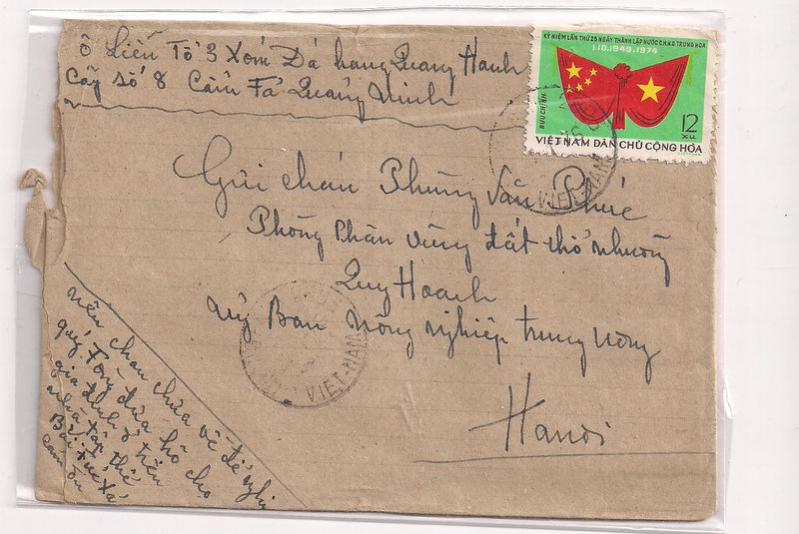 ô Liến Tổ 3 Xóm Đá hang Quang Hanh
Cây số 8 Cẩm Fả Quảng Ninh
KỶ NIỆM LẦN THỨ 25 NGÀY THÀNH LẬP NƯỚC C.H.N.D TRUNG HOA
1.10.1949-1974
BƯU CHÍNH
12
XU
VIỆT NAM DÂN CHỦ CỘNG HÒA
VIET-NAM
Gửi cháu Phùng Văn Phúc
Phòng Phân vùng đất thổ nhưỡng
Quy Hoạch
Uỷ Ban Nông nghiệp trung ương
Hanoi
VIET-NAM
nếu cháu chưa về đề nghị
quý Fòng đưa hộ cho
gia đình ở trên
nhà tập thể
Bắc
cám ơn